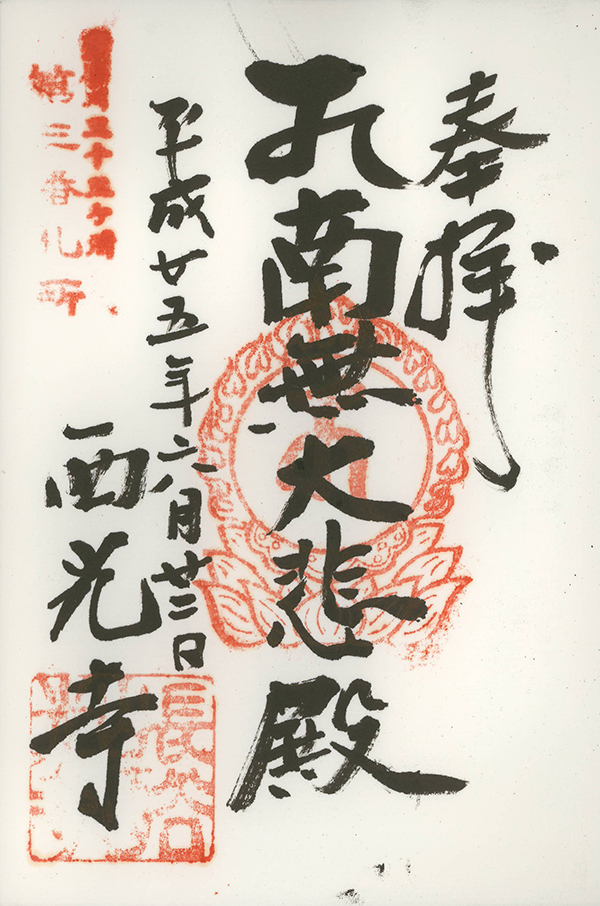 奉拝
南無大悲殿
平成廿五年六月廿二日
西光寺
第三番札所